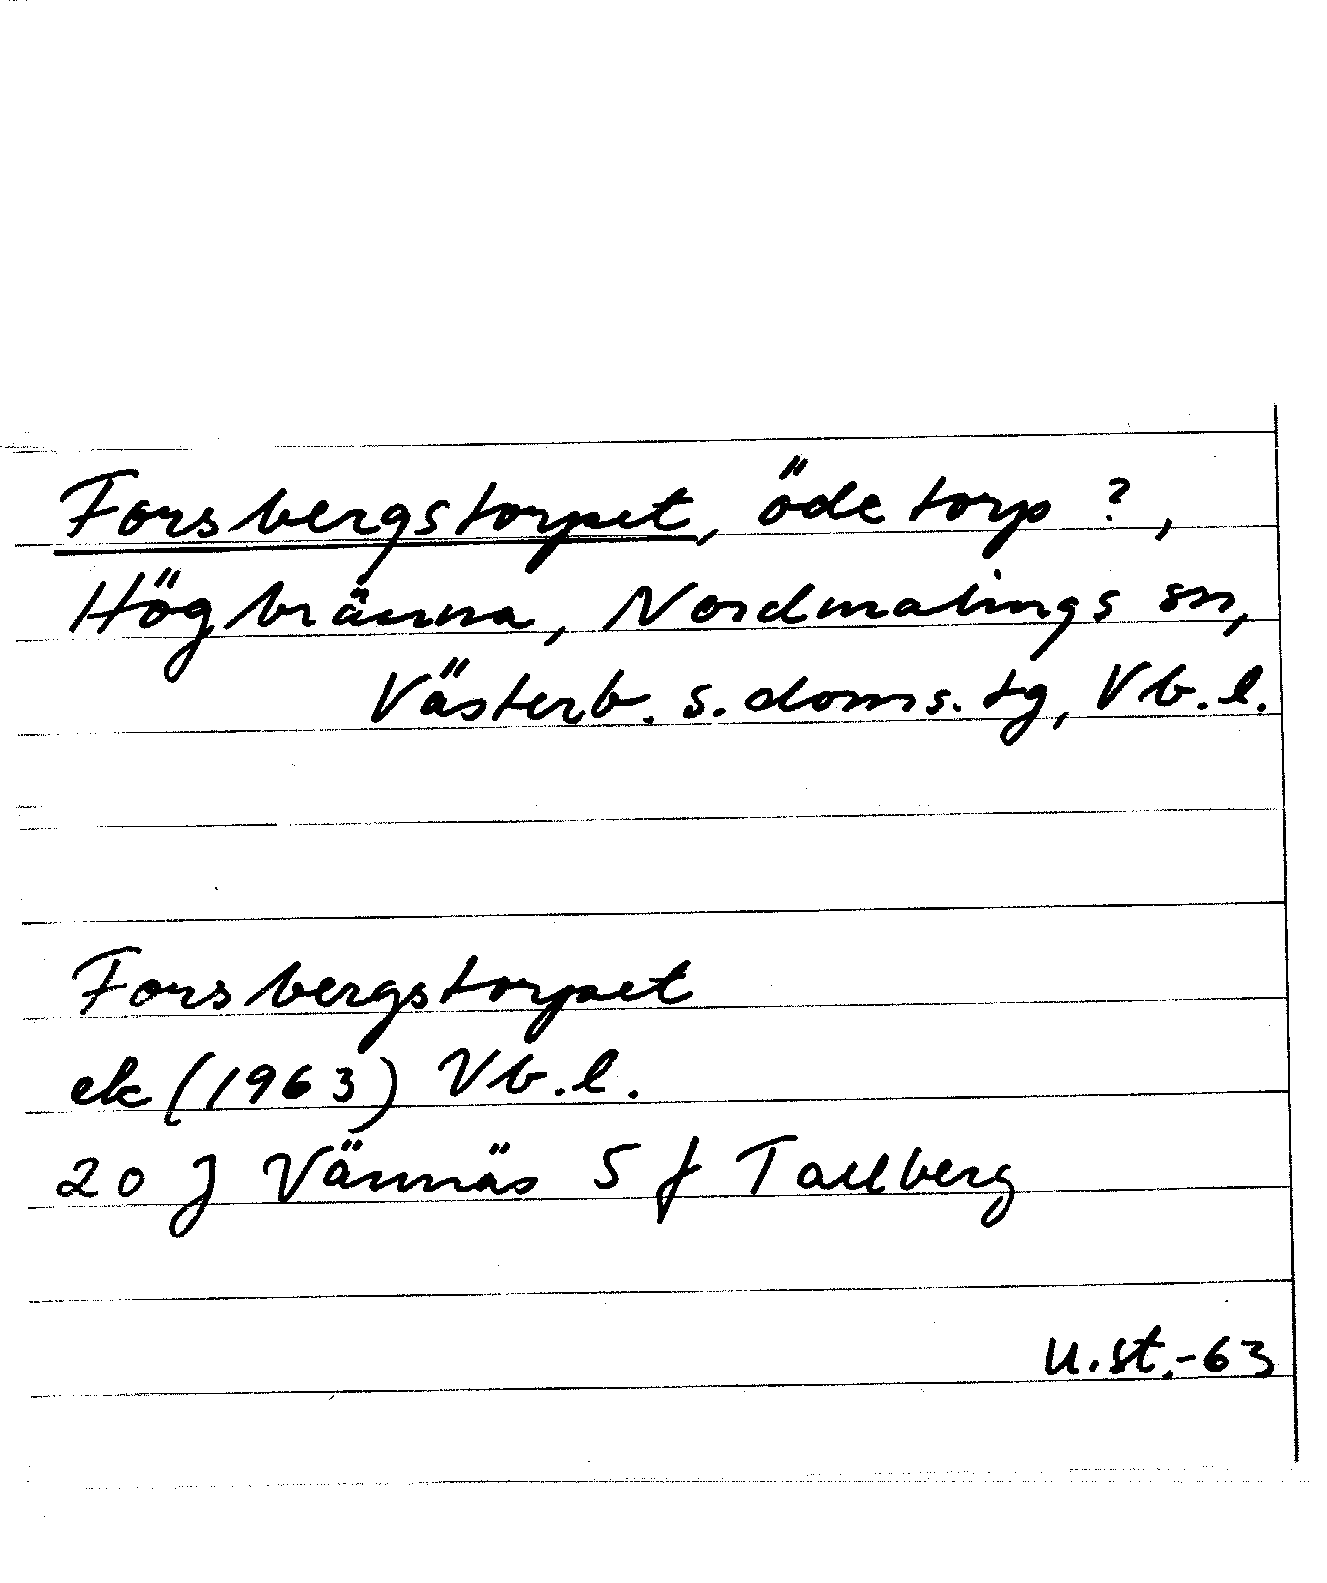 Forsbergstorpet, öde torp ?,
Högbränna, Nordmalings sn,
Västerb. s. doms. tg, Vb. l.
Forsbergstorpet
ek (1963) Vb. l.
20 J Vännäs 5 f Tallberg
U. st. -63